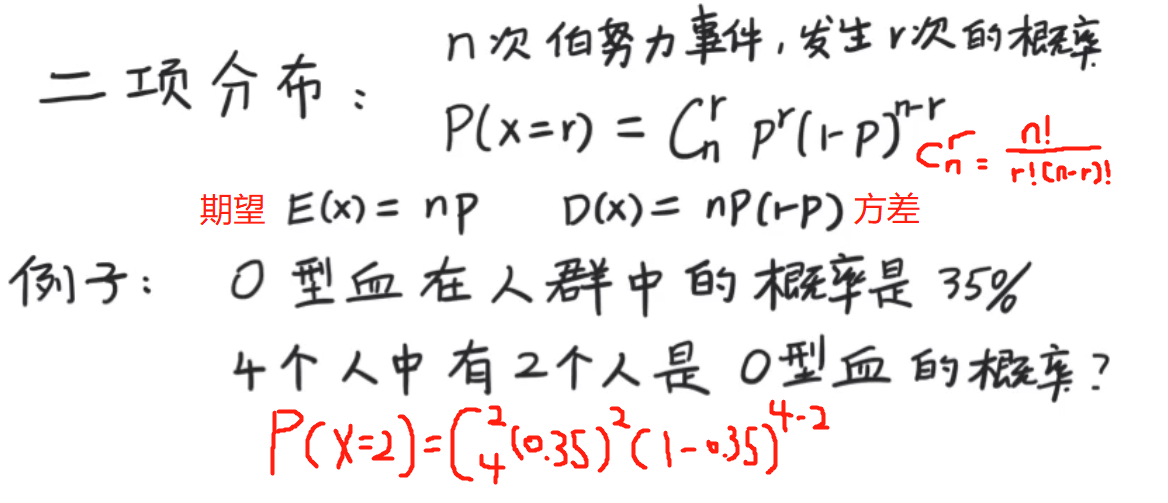 n次伯努力事件,发生r次的概率
二项分布:
P(x=r) = C_n^r p^r(1-p)^{n-r}
C_n^r = n!/r!(n-r)!
期望 E(x) = np D(x) = np(1-p) 方差
例子: O型血在人群中的概率是35%
4个人中有2个人是O型血的概率?
P(X=2)=C_4^2(0.35)^2(1-0.35)^{4-2}